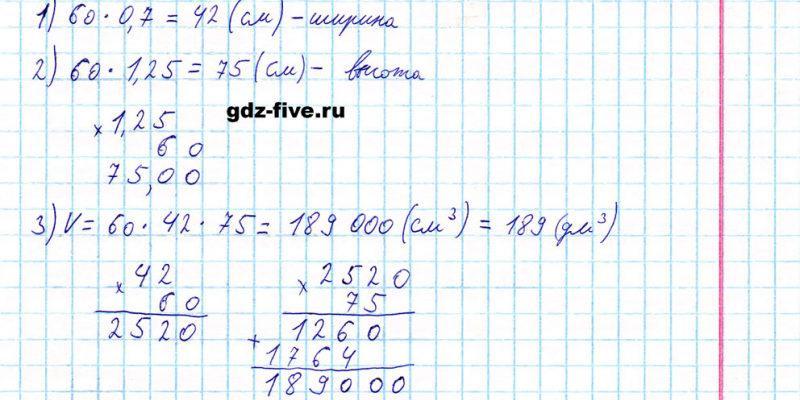 1) 60 · 0,7 = 42 (см) - ширина
2) 60 · 1,25 = 75 (см) - высота
gdz-five.ru
× 1,25
60
75,00
3) V = 60 · 42 · 75 = 189 000 (см³) = 189 (дм³)
× 42
60
2520
× 2520
75
1260 0
+ 1764
189000